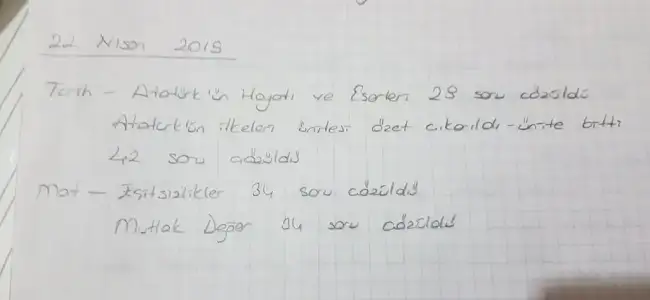 22 Nisan 2019
Tarih - Atatürk'ün Hayatı ve Eserleri 28 soru çözüldü
Atatürk'ün ilkeleri ünitesi özet çıkarıldı - ünite bitti
42 soru çözüldü
Mat - Eşitsizlikler 34 soru çözüldü
Mutlak Değer 34 soru çözüldü